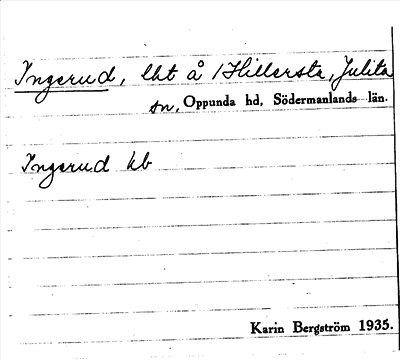 Ingerud, lht å /Hillersta, Julita
sn, Oppunda hd, Södermanlands län.
Ingerud kb
Karin Bergström 1935.